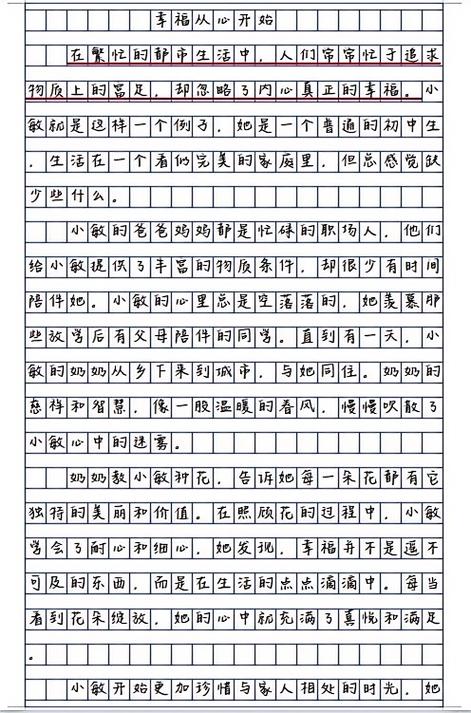 幸福从心开始
在繁忙的都市生活中，人们常常忙于追求
物质上的富足，却忽略了内心真正的幸福。小
敏就是这样一个例子，她是一个普通的初中生
，生活在一个看似完美的家庭里，但总感觉缺
少些什么。
小敏的爸爸妈妈都是忙碌的职场人，他们
给小敏提供了丰富的物质条件，却很少有时间
陪伴她。小敏的心里总是空落落的，她羡慕那
些放学后有父母陪伴的同学。直到有一天，小
敏的奶奶从乡下来到城市，与她同住。奶奶的
慈祥和智慧，像一股温暖的春风，慢慢吹散了
小敏心中的迷雾。
奶奶教小敏种花，告诉她每一朵花都有它
独特的美丽和价值。在照顾花的过程中，小敏
学会了耐心和细心，她发现，幸福并不是遥不
可及的东西，而是在生活的点点滴滴中。每当
看到花朵绽放，她的心中就充满了喜悦和满足
。
小敏开始更加珍惜与家人相处的时光，她